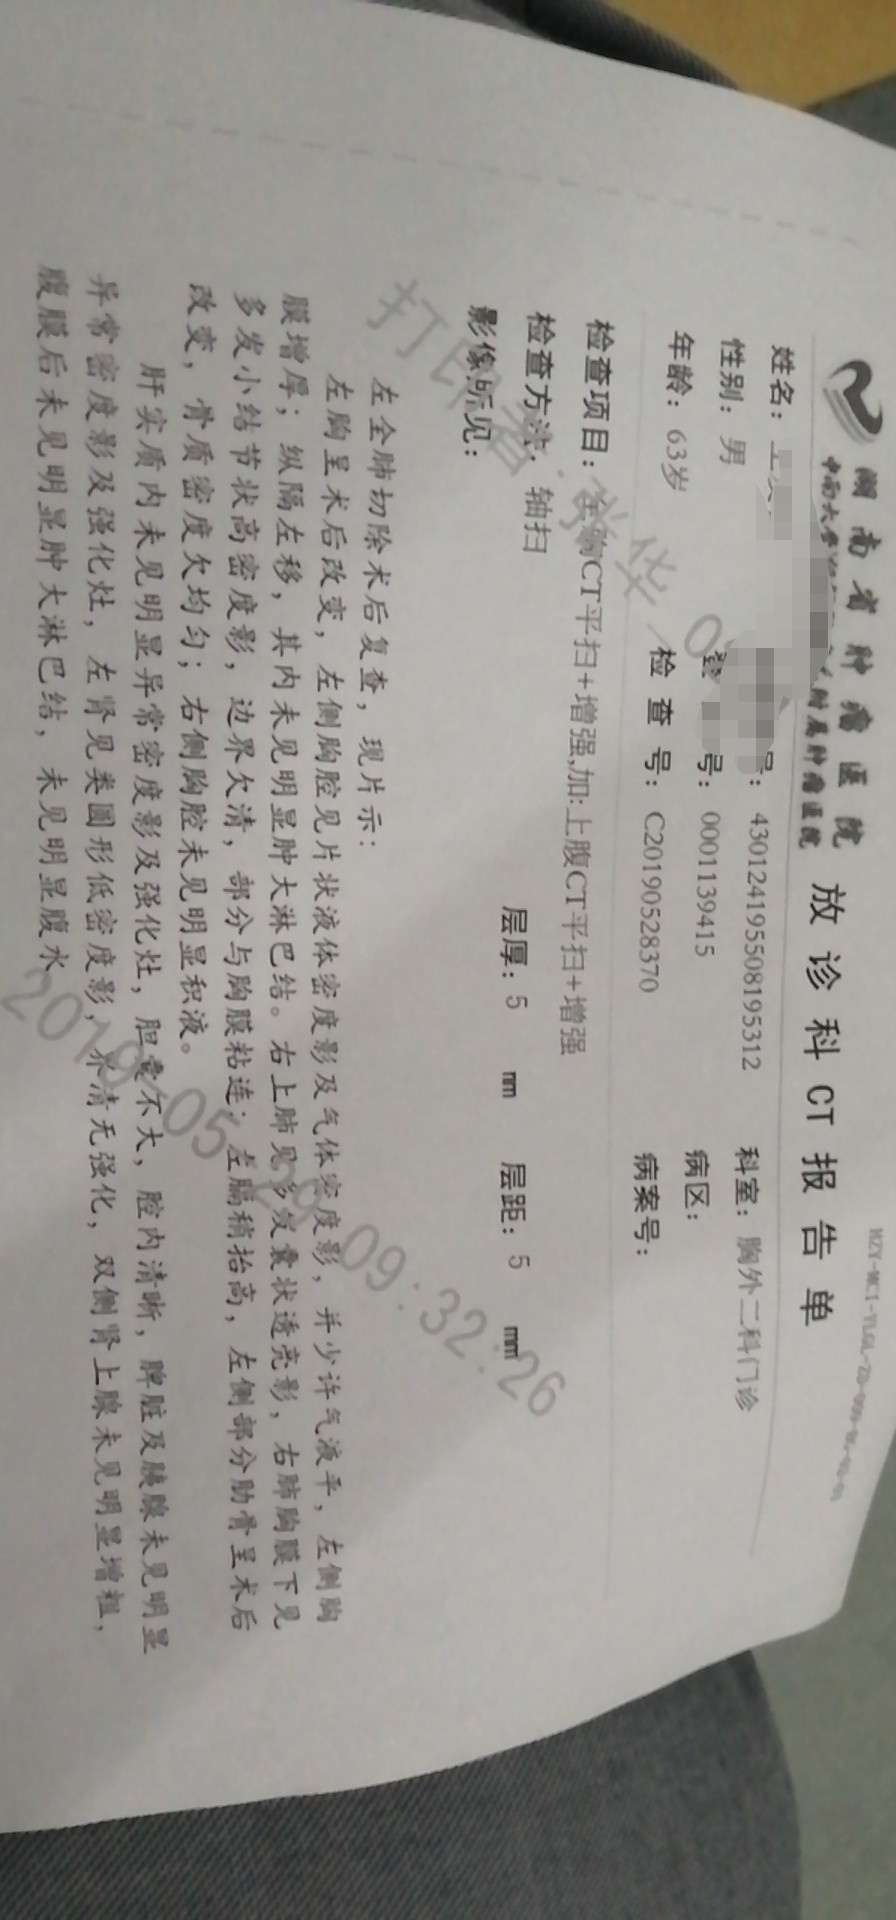 MZY-MC1-YLGL-ZD-
湖南省肿瘤医院
中南大学 附属肿瘤医院
放诊科CT报告单
姓名： 号：430124195508195312 科室：胸外二科门诊
性别：男 号：0001139415 病区：
年龄：63岁 检查号：C20190528370 病案号：
检查项目： 胸CT平扫+增强,加:上腹CT平扫+增强
检查方法：轴扫 层厚：5 mm 层距：5 mm
影像所见：
左全肺切除术后复查，现片示：
左胸呈术后改变，左侧胸腔见片状液体密度影及气体密度影，并少许气液平，左侧胸
膜增厚；纵隔左移，其内未见明显肿大淋巴结。右上肺见多发囊状透亮影，右肺胸膜下见
多发小结节状高密度影，边界欠清，部分与胸膜粘连；左膈稍抬高，左侧部分肋骨呈术后
改变，骨质密度欠均匀；右侧胸腔未见明显积液。
肝实质内未见明显异常密度影及强化灶，胆囊不大，腔内清晰，脾脏及胰腺未见明显
异常密度影及强化灶，左肾见类圆形低密度影，界清无强化，双侧肾上腺未见明显增粗，
腹膜后未见明显肿大淋巴结，未见明显腹水
打印者: 华
2019/05 09:32:26